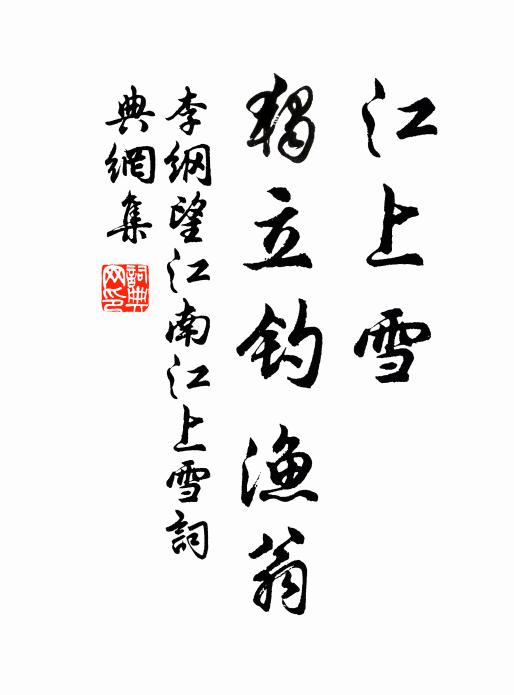 江上雪
獨立釣漁翁
李綱望江南江上雪詞
典網集
詞典網印